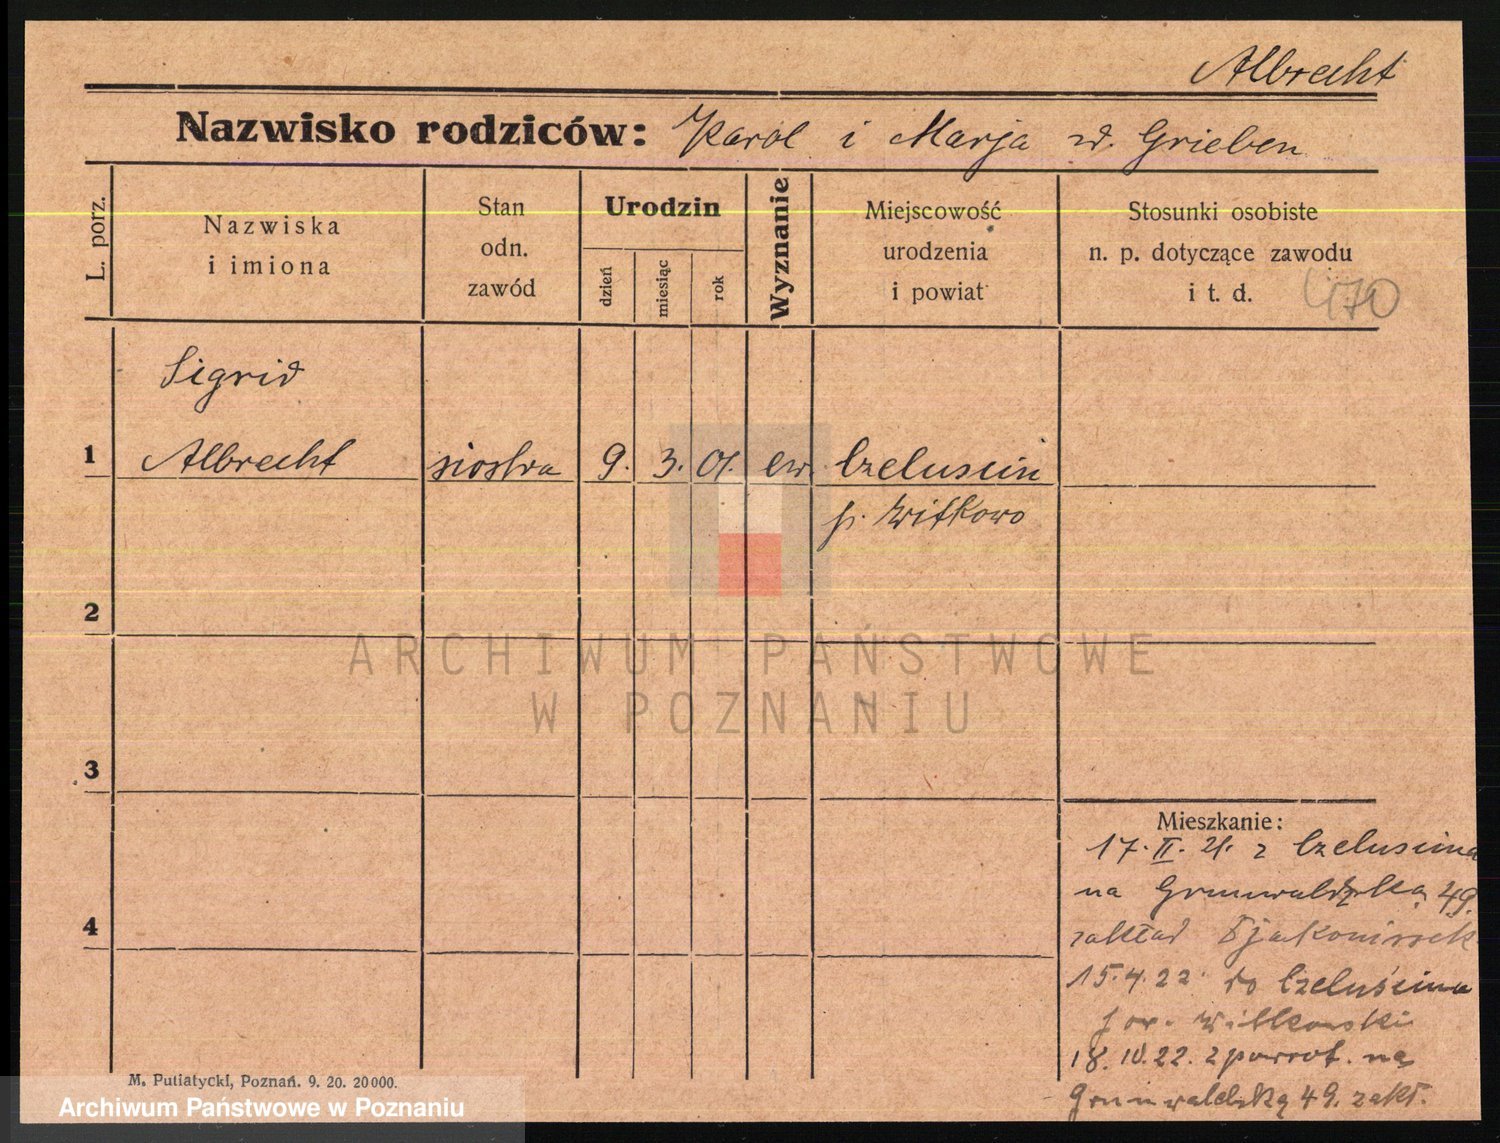 Albrecht
Nazwisko rodziców: Karol i Marja z d. Grieben
L. porz.
Nazwiska
i imiona
Stan
odn.
zawód
Urodzin
dzień
miesiąc
rok
Wyznanie
Miejscowość
urodzenia
i powiat
Stosunki osobiste
n. p. dotyczące zawodu
i t. d.
470
Sigrid
1 Albrecht siostra 9. 3. 01. ew. Czeluscin
p. Witkowo
2
3
4
ARCHIWUM PAŃSTWOWE
W POZNANIU
Mieszkanie:
17. II. 21. z Czeluscina
na Grunwaldzką 49.
zakład Djakonisek
15.4.22 do Czeluścina
pow. Witkowski
18.IV.22. z powrot. na
Grunwaldzką 49. zakł.
M. Putiatycki, Poznań. 9. 20. 20000.
Archiwum Państwowe w Poznaniu